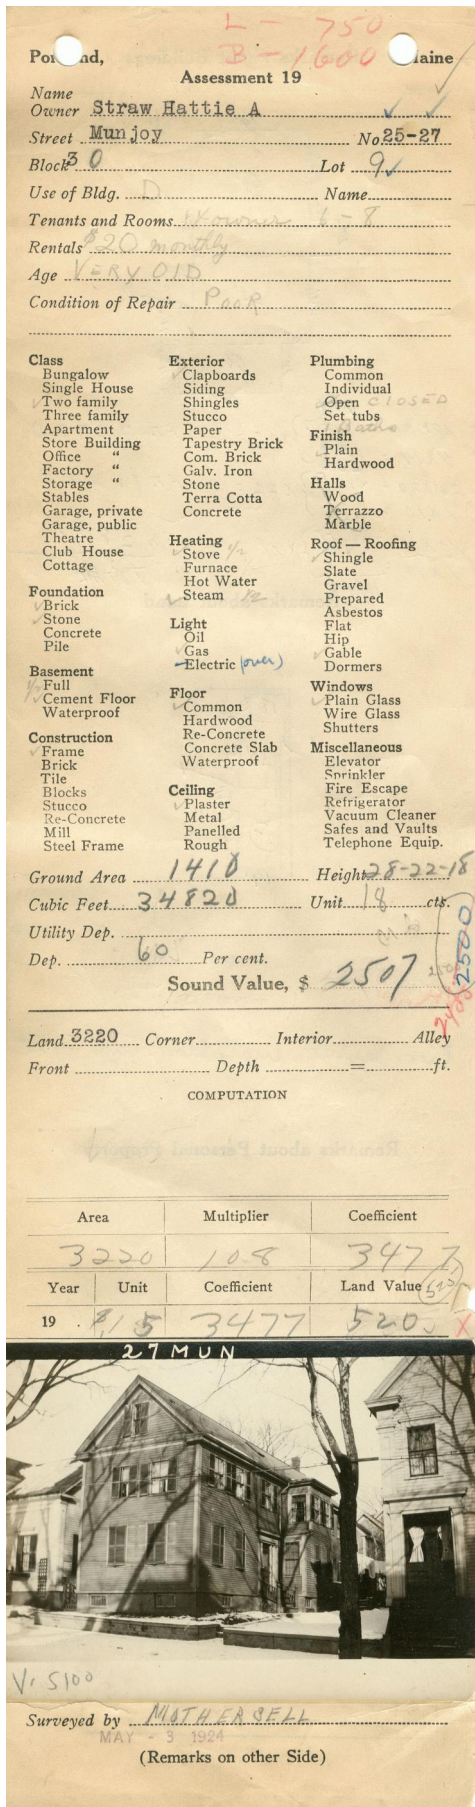 L - 750
B - 1600
Portland, Maine
Assessment 19
Name
Owner Straw Hattie A
Street Munjoy No. 25-27
Block 30 Lot 9
Use of Bldg. D Name
Tenants and Rooms owner 6-8
Rentals $20 monthly
Age VERY OLD
Condition of Repair POOR
Class
Bungalow
Single House
✓ Two family
Three family
Apartment
Store Building
Office "
Factory "
Storage "
Stables
Garage, private
Garage, public
Theatre
Club House
Cottage
Foundation
✓ Brick
✓ Stone
Concrete
Pile
Basement
1/2 Full
✓ Cement Floor
Waterproof
Construction
✓ Frame
Brick
Tile
Blocks
Stucco
Re-Concrete
Mill
Steel Frame
Exterior
✓ Clapboards
Siding
Shingles
Stucco
Paper
Tapestry Brick
Com. Brick
Galv. Iron
Stone
Terra Cotta
Concrete
Heating
✓ Stove 1/2
Furnace
Hot Water
✓ Steam 1/2
Light
Oil
✓ Gas
Electric (over)
Floor
✓ Common
Hardwood
Re-Concrete
Concrete Slab
Waterproof
Ceiling
✓ Plaster
Metal
Panelled
Rough
Plumbing
Common
Individual
Open CLOSED
Set tubs
1 Baths
Finish
✓ Plain
Hardwood
Halls
Wood
Terrazzo
Marble
Roof — Roofing
✓ Shingle
Slate
Gravel
Prepared
Asbestos
Flat
Hip
✓ Gable
Dormers
Windows
✓ Plain Glass
Wire Glass
Shutters
Miscellaneous
Elevator
Sprinkler
Fire Escape
Refrigerator
Vacuum Cleaner
Safes and Vaults
Telephone Equip.
Ground Area 1410 Height 28-22-18
Cubic Feet 34820 Unit 18 cts.
Utility Dep.
Dep. 60 Per cent.
Sound Value, $ 2507
2500
Land 3220 Corner Interior Alley
Front Depth = ft.
COMPUTATION
Area Multiplier Coefficient
3220 108 3477
Year Unit Coefficient Land Value 525
19 $.15 3477 520
X
27 MUN
V. 5100
Surveyed by MOTHERSELL
MAY - 3 1924
(Remarks on other Side)